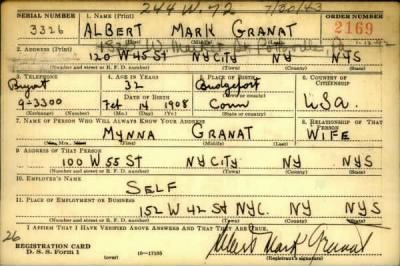 244 W. 72 7/30/43
SERIAL NUMBER 1. NAME (Print) ORDER NUMBER
3326 ALBERT MARK GRANAT 2169
2. ADDRESS (Print)
120 W 45 ST NY CITY NY NYS
(Number and street or R. F. D. number) (Town) (County) (State)
3. TELEPHONE 4. AGE IN YEARS 5. PLACE OF BIRTH 6. COUNTRY OF CITIZENSHIP
Bryant 32 Bridgeport
DATE OF BIRTH
9-3300 Feb 14 1908 Conn USA
(Exchange) (Number) (Mo.) (Day) (Yr.) (State or country)
7. NAME OF PERSON WHO WILL ALWAYS KNOW YOUR ADDRESS 8. RELATIONSHIP OF THAT PERSON
MYNNA GRANAT WIFE
(Mr., Mrs., Miss) (First) (Middle) (Last)
9. ADDRESS OF THAT PERSON
100 W 55 ST NY CITY NY NYS
(Number and street or R. F. D. number) (Town) (County) (State)
10. EMPLOYER'S NAME
SELF
11. PLACE OF EMPLOYMENT OR BUSINESS
152 W 42 ST NYC. NY NYS
(Number and street or R. F. D. number) (Town) (County) (State)
I AFFIRM THAT I HAVE VERIFIED ABOVE ANSWERS AND THAT THEY ARE TRUE.
26
REGISTRATION CARD
D. S. S. Form 1 (over) 16—17105 Albert Mark Granat
(Registrant's signature)